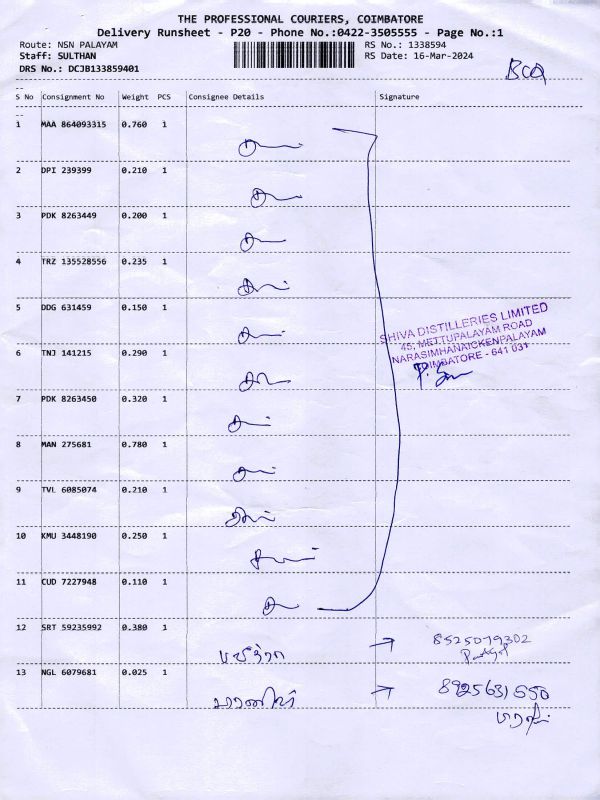 THE PROFESSIONAL COURIERS, COIMBATORE
Delivery Runsheet - P20 - Phone No.:0422-3505555 - Page No.:1
Route: NSN PALAYAM RS No.: 1338594
Staff: SULTHAN RS Date: 16-Mar-2024
DRS No.: DCJB133859401
--
S No Consignment No Weight PCS Consignee Details Signature
--
1 MAA 864093315 0.760 1
2 DPI 239399 0.210 1
3 PDK 8263449 0.200 1
4 TRZ 135528556 0.235 1
5 DDG 631459 0.150 1
SHIVA DISTILLERIES LIMITED
45, METTUPALAYAM ROAD
NARASIMHANAICKENPALAYAM
COIMBATORE - 641 031
6 TNJ 141215 0.290 1
7 PDK 8263450 0.320 1
8 MAN 275681 0.780 1
9 TVL 6085074 0.210 1
10 KMU 3448190 0.250 1
11 CUD 7227948 0.110 1
12 SRT 59235992 0.380 1
→ 8525079302
13 NGL 6079681 0.025 1
→ 8925631550